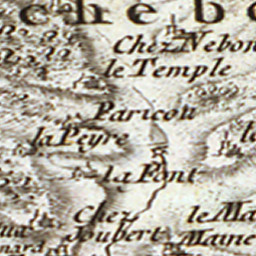 chebo
Chez Nebon
le Temple
Paricou
la Peyre
le
la Font
Chez
Joubert
le Ma
Maine